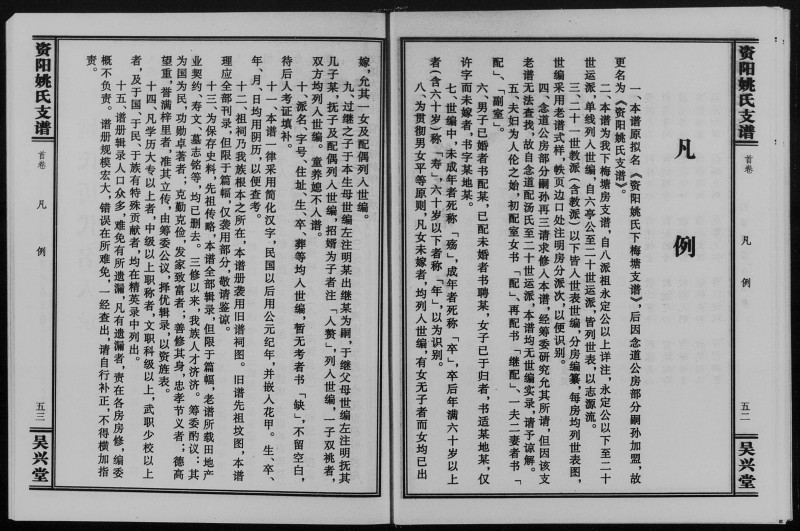 资阳姚氏支谱
首卷
凡例
五二
吴兴堂
凡例
一、本谱原拟名《资阳姚氏下梅塘支谱》,后因念道公房部分嗣孙加盟,故
更名为《资阳姚氏支谱》。
二、本谱为我下梅塘房支谱,自八派祖永定公以上详注,永定公以下至二十
世运派,单线列入世编,自六亭公至二十世运派,皆列世表,以志源流。
三、二十一世教派(含教派)以下皆人世表世编,分房编纂,每房均列世表图,
世编采用老谱式样,帙页边口处注明房分派次,以便识别。
四、念道公房部分嗣孙再三请求修入本谱,经筹委研究允其所请,但因该支
老谱无法查找,故自念道配汤氏至二十世运派,本谱均无世编实录,请予谅解。
五、夫妇为人伦之始,初配室女书「配」、再配书「继配」、一夫二妻者书「
配」、「副室」。
六、男子已婚者书配某,已配未婚者书聘某,女子已于归者,书适某地某,仅
许字而未嫁者,书字某地某。
七、世编中,未成年者死称「殇」,成年者死称「卒」,卒后年满六十岁以上
者(含六十岁)称「寿」,六十岁以下者称「年」,以为识别。
八、为贯彻男女平等原则,凡女未嫁者,均列入世编,有女无子者而女均已出
嫁,允其一女及配偶列入世编。
九、过继之子于本生母世编左注明某出继某为嗣,于继父母世编左注明抚其
儿子某,抚子及配偶列入世编,招婿为子者注「入赘」,列入世编,一子双祧者,
双方均列入世编。童养媳不入谱。
十、派名、字号、住址、生、卒、葬等均入世编,暂无考者书「缺」,不留空白,
待后人考证填补。
十一、本谱一律采用简化汉字,民国以后用公元纪年,并嵌入花甲。生、卒、
年、月、日均用阴历,以便查考。
十二、祖祠乃我族根本之所在,本谱册袭用旧谱祠图。旧谱先祖坟图,本谱
理应全部刊录,但限于篇幅,仅袭用部分,敬请鉴谅。
十三、为保存史料,先祖传略,本谱全部辑录,但限于篇幅,老谱所载田地产
业契约、寿文、墓志铭等,均已删去。三修以来,我族人才济济。筹委酌议:其
为国为民,功勋卓著者;克勤克俭,发家致富者;善修其身,忠孝节义者;德高
望重,誉满梓里者,准其立传,由筹委公议,择优辑录,以资族表。
十四、凡学历大专以上者,中级以上职称者,文职科级以上,武职少校以上
者,及于国、于民、于族有特殊贡献者,均在精英录中列出。
十五、谱册辑录人口众多,难免有所遗漏,凡有遗漏者,责在各房房修,编委
概不负责。谱册规模宏大,错误在所难免,一经查出,请自行补正,不得横加指
责。
资阳姚氏支谱
首卷
凡例
五三
吴兴堂